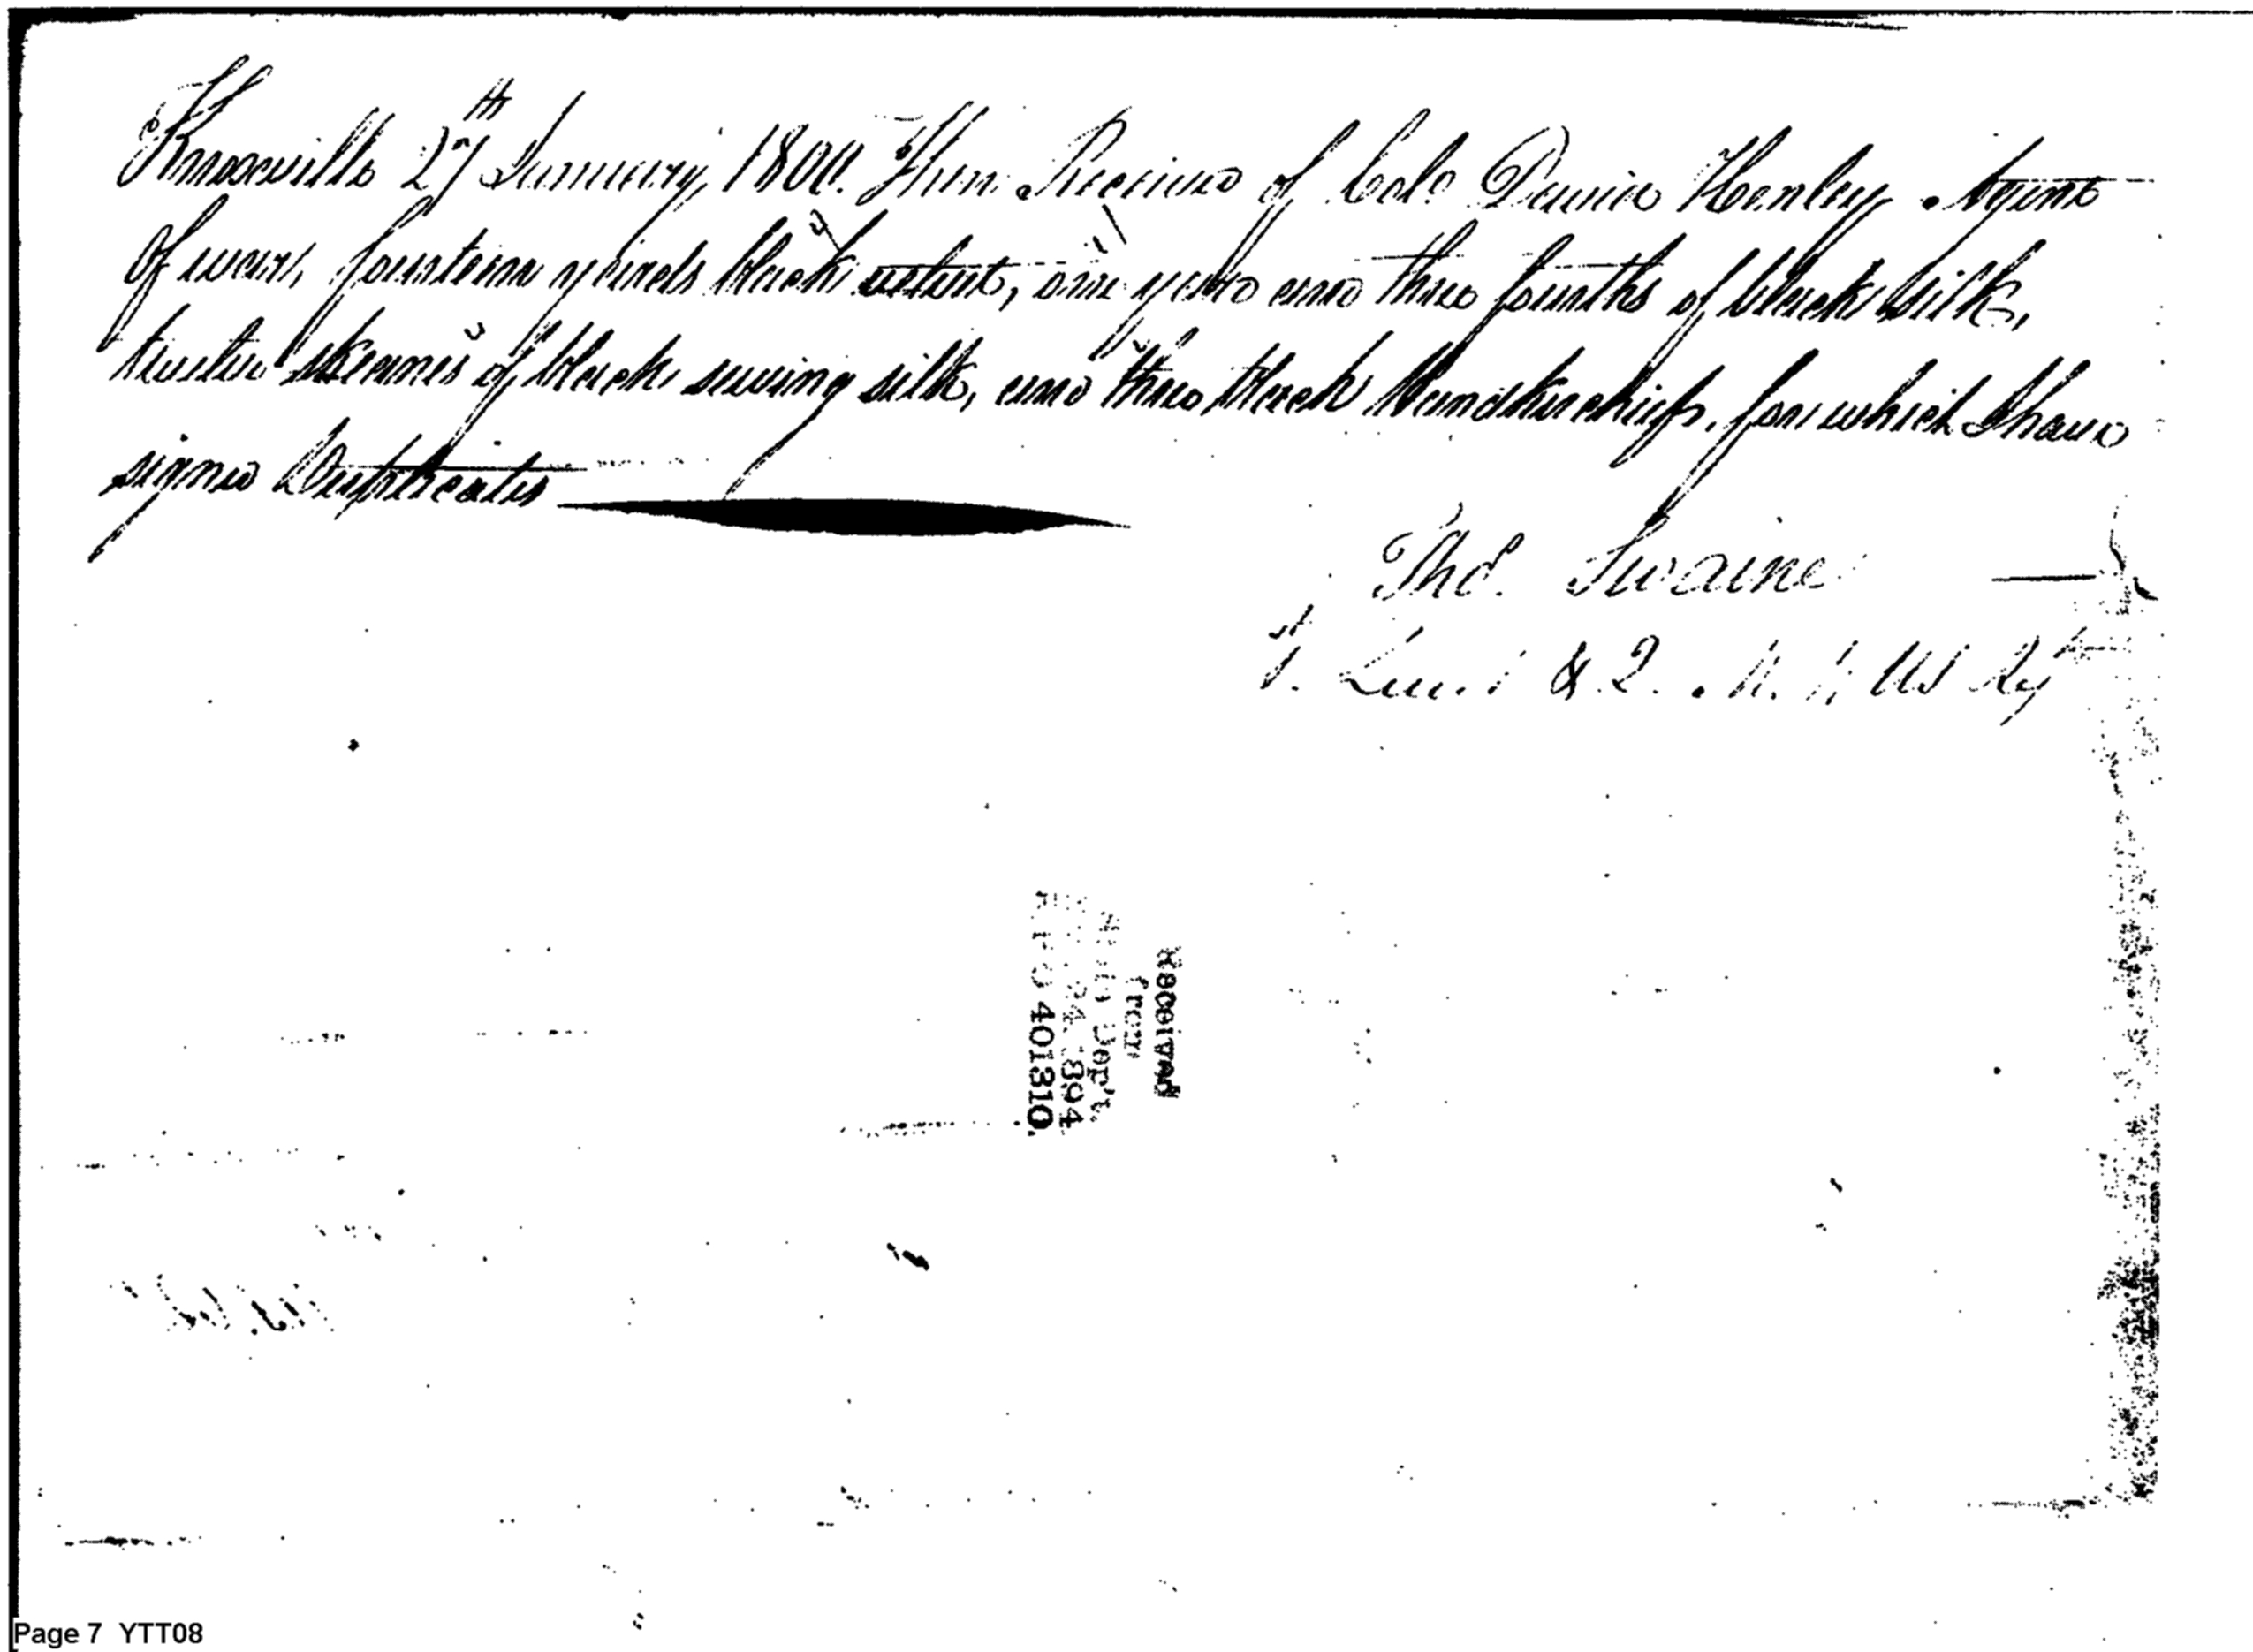 Knoxville 27th January 1800. Then Received of Colo. David Henley Agent
of war, fourteen yards black, one yard and three fourths of black silk,
twelve skeanes of black sewing silk, and three black Handkerchiefs, for which I have
signed Duplicates
Tho. Swaine
Lieut & Q. M. US
Received
from
Dept
1894
401310
Page 7 YTT08